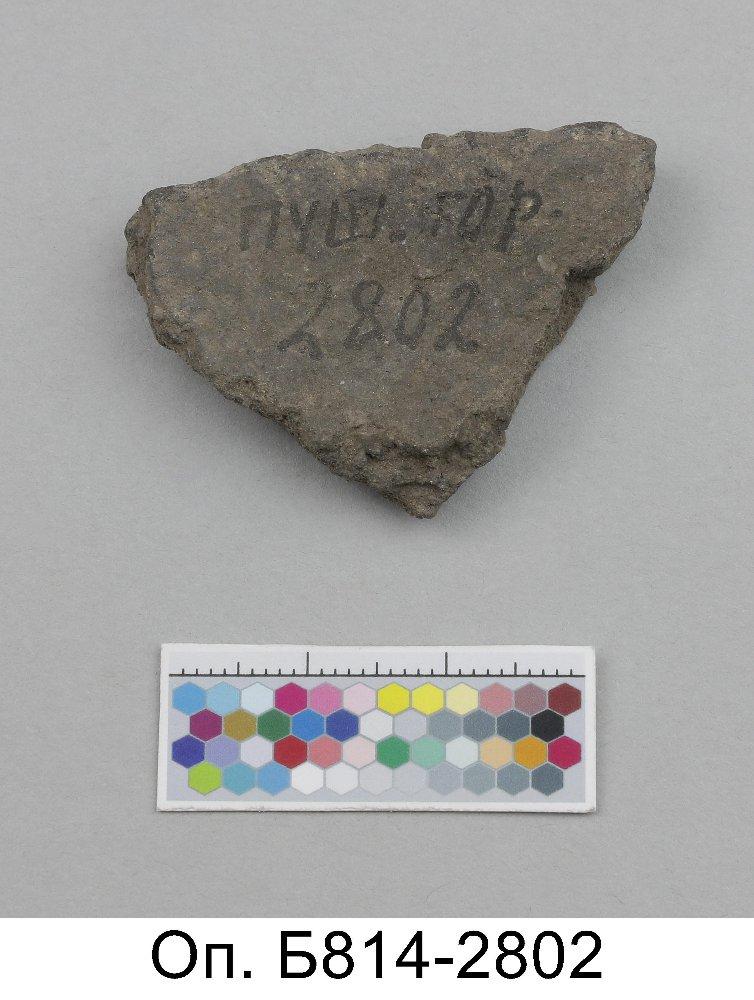 ПУШ. ГОР.
2802
Оп. Б814-2802